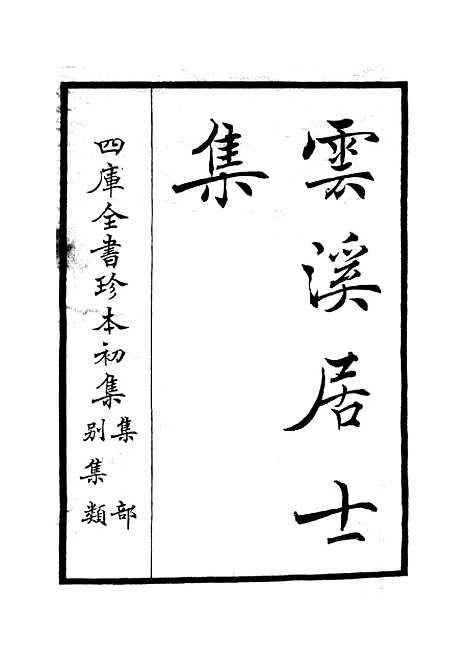 雲溪居士
集
四庫全書珍本初集
集部
别集類